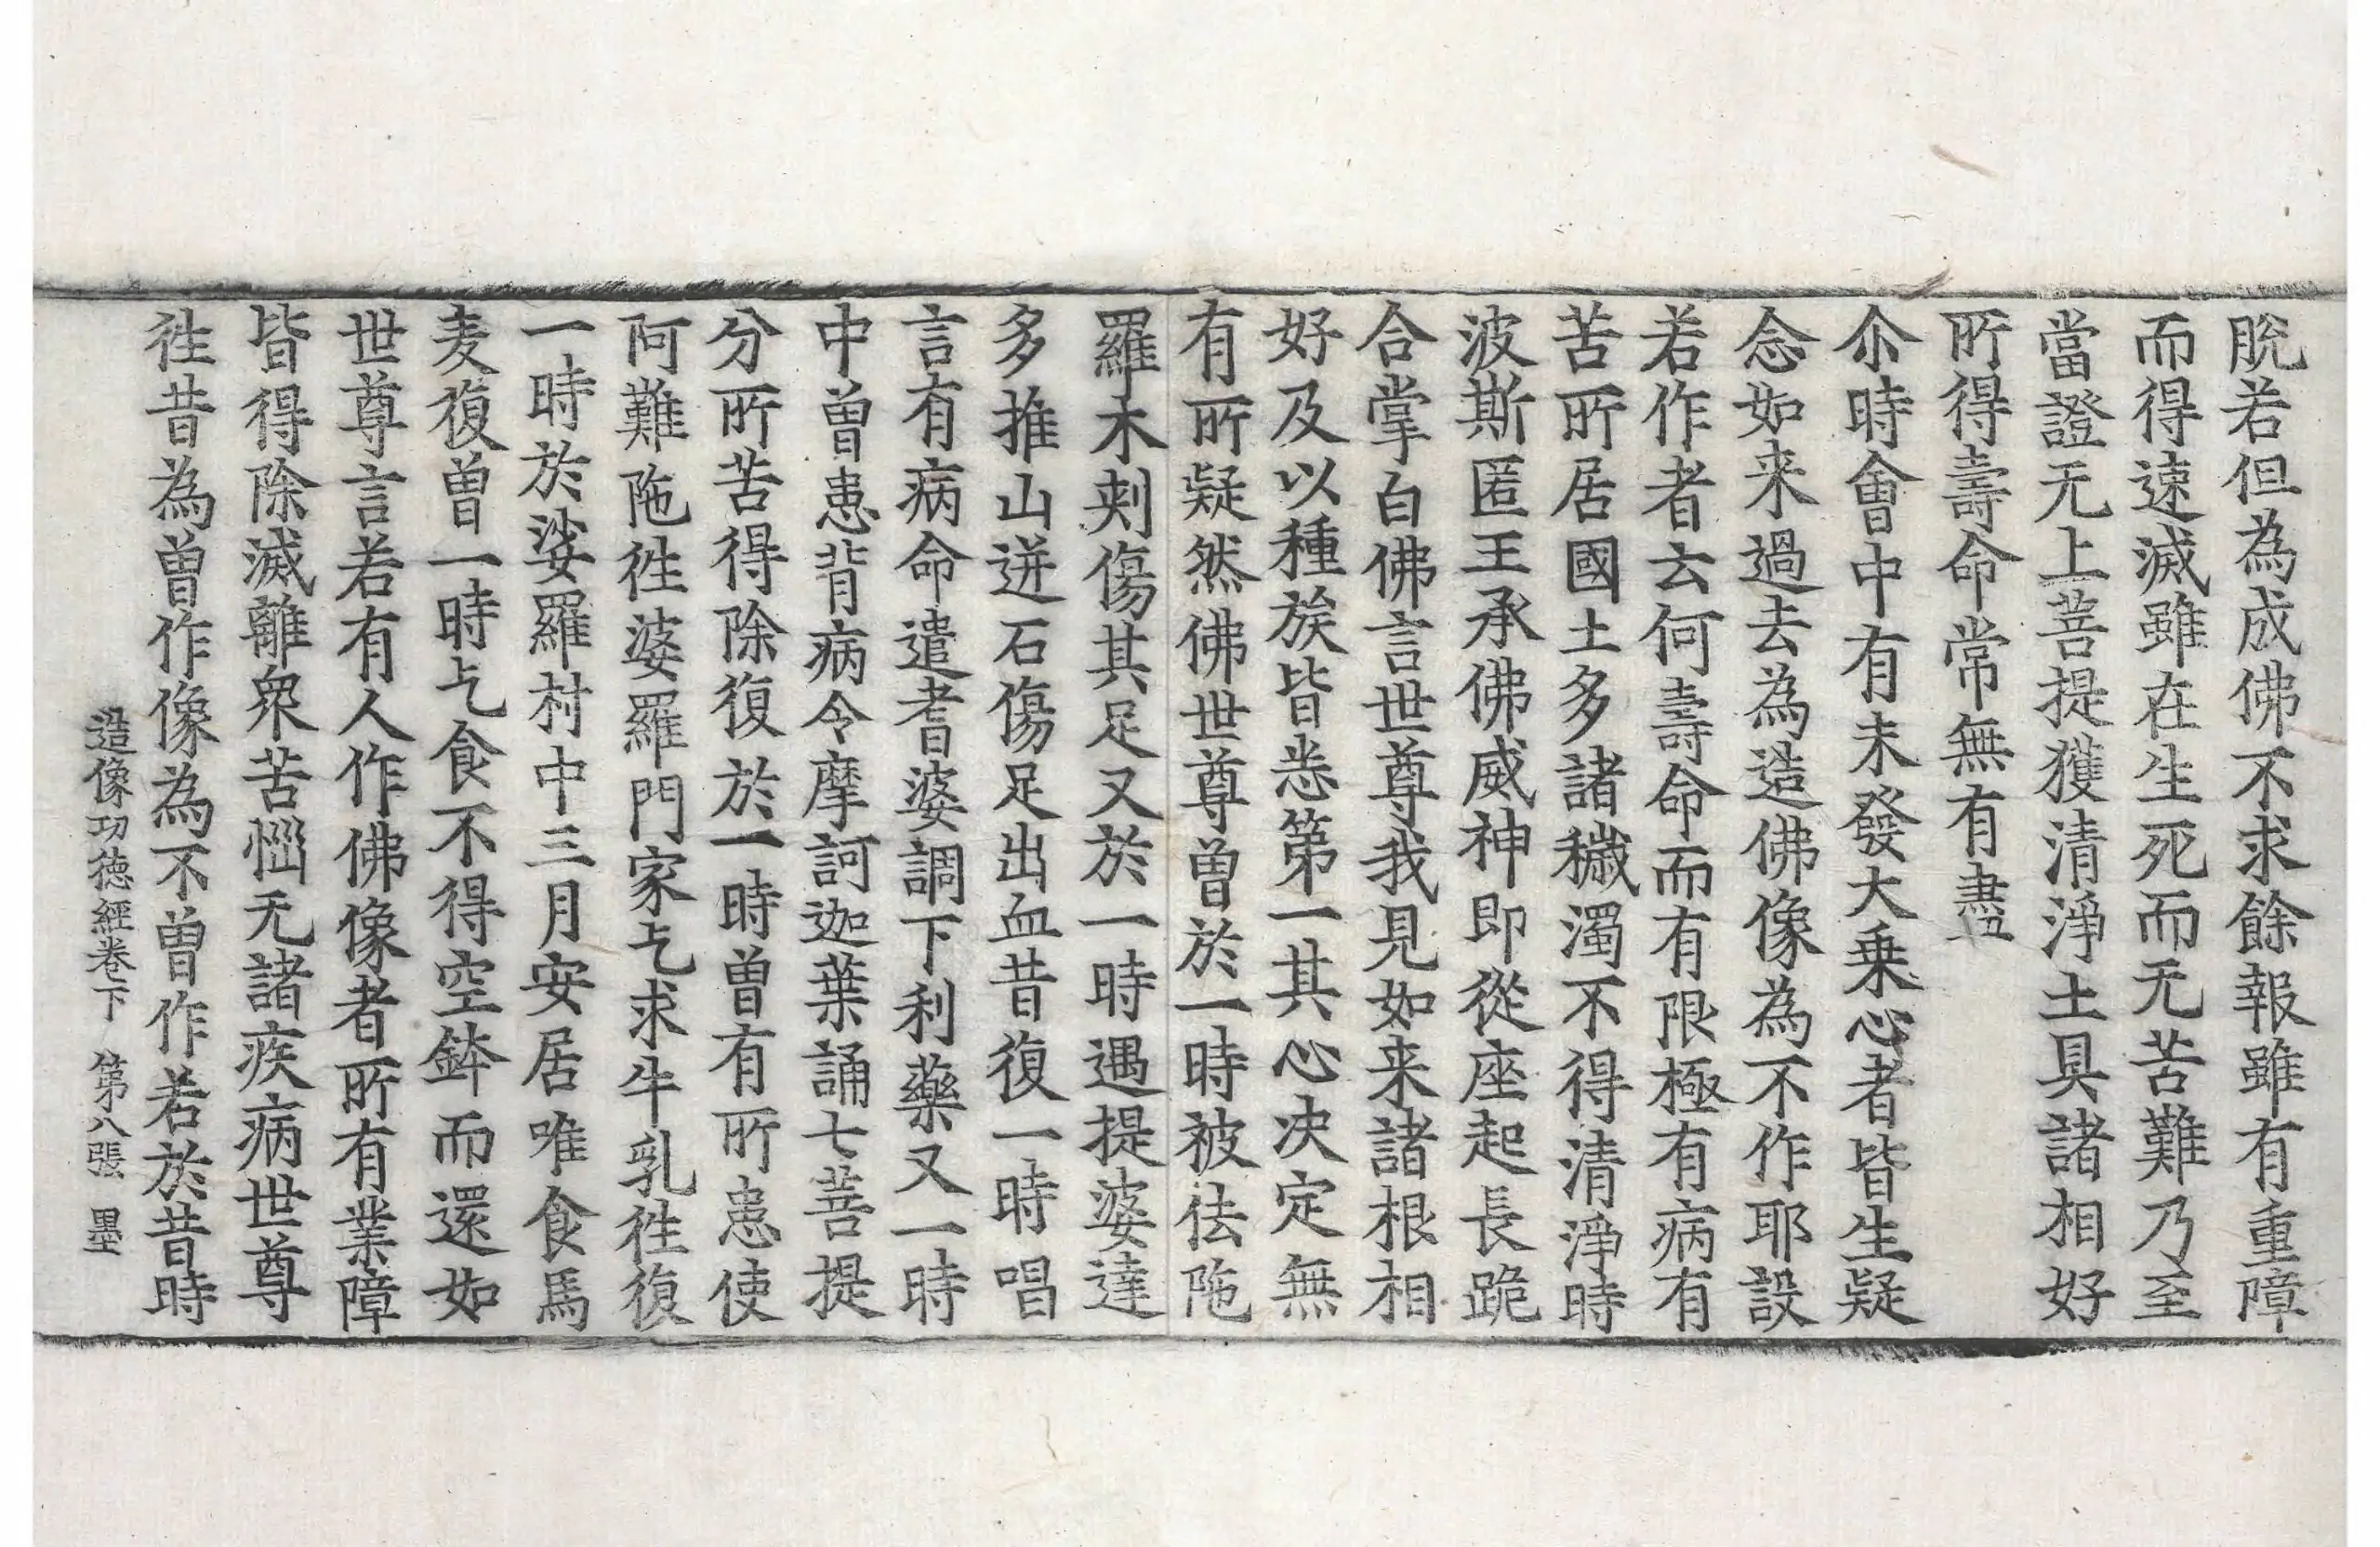 脫若但為成佛不求餘報雖有重障
而得速滅雖在生死而无苦難乃至
當證无上菩提獲清淨土具諸相好
所得壽命常無有盡
尒時會中有未發大乗心者皆生疑
念如来過去為造佛像為不作耶設
若作者云何壽命而有限極有病有
苦所居國土多諸穢濁不得清淨時
波斯匿王承佛威神即從座起長跪
合掌白佛言世尊我見如来諸根相
好及以種族皆悉第一其心决定無
有所疑然佛世尊曽於一時被佉陁
羅木刾傷其足又於一時遇提婆達
多推山迸石傷足出血昔復一時唱
言有病命遣耆婆調下利藥又一時
中曽患背病令摩訶迦葉誦七菩提
分所苦得除復於一時曽有所患使
阿難陁徃婆羅門家乞求牛乳徃復
一時於娑羅村中三月安居唯食馬
麦復曽一時乞食不得空鉢而還如
世尊言若有人作佛像者所有業障
皆得除滅離衆苦惱无諸疾病世尊
徃昔為曽作像為不曽作若於昔時
造像功德經卷下 第八張 墨